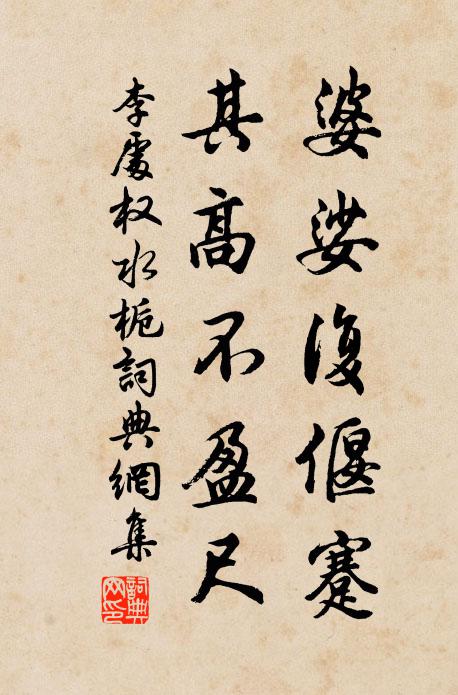 婆娑復偃蹇
其高不盈尺
李處权水栀詞典網集
詞典網印